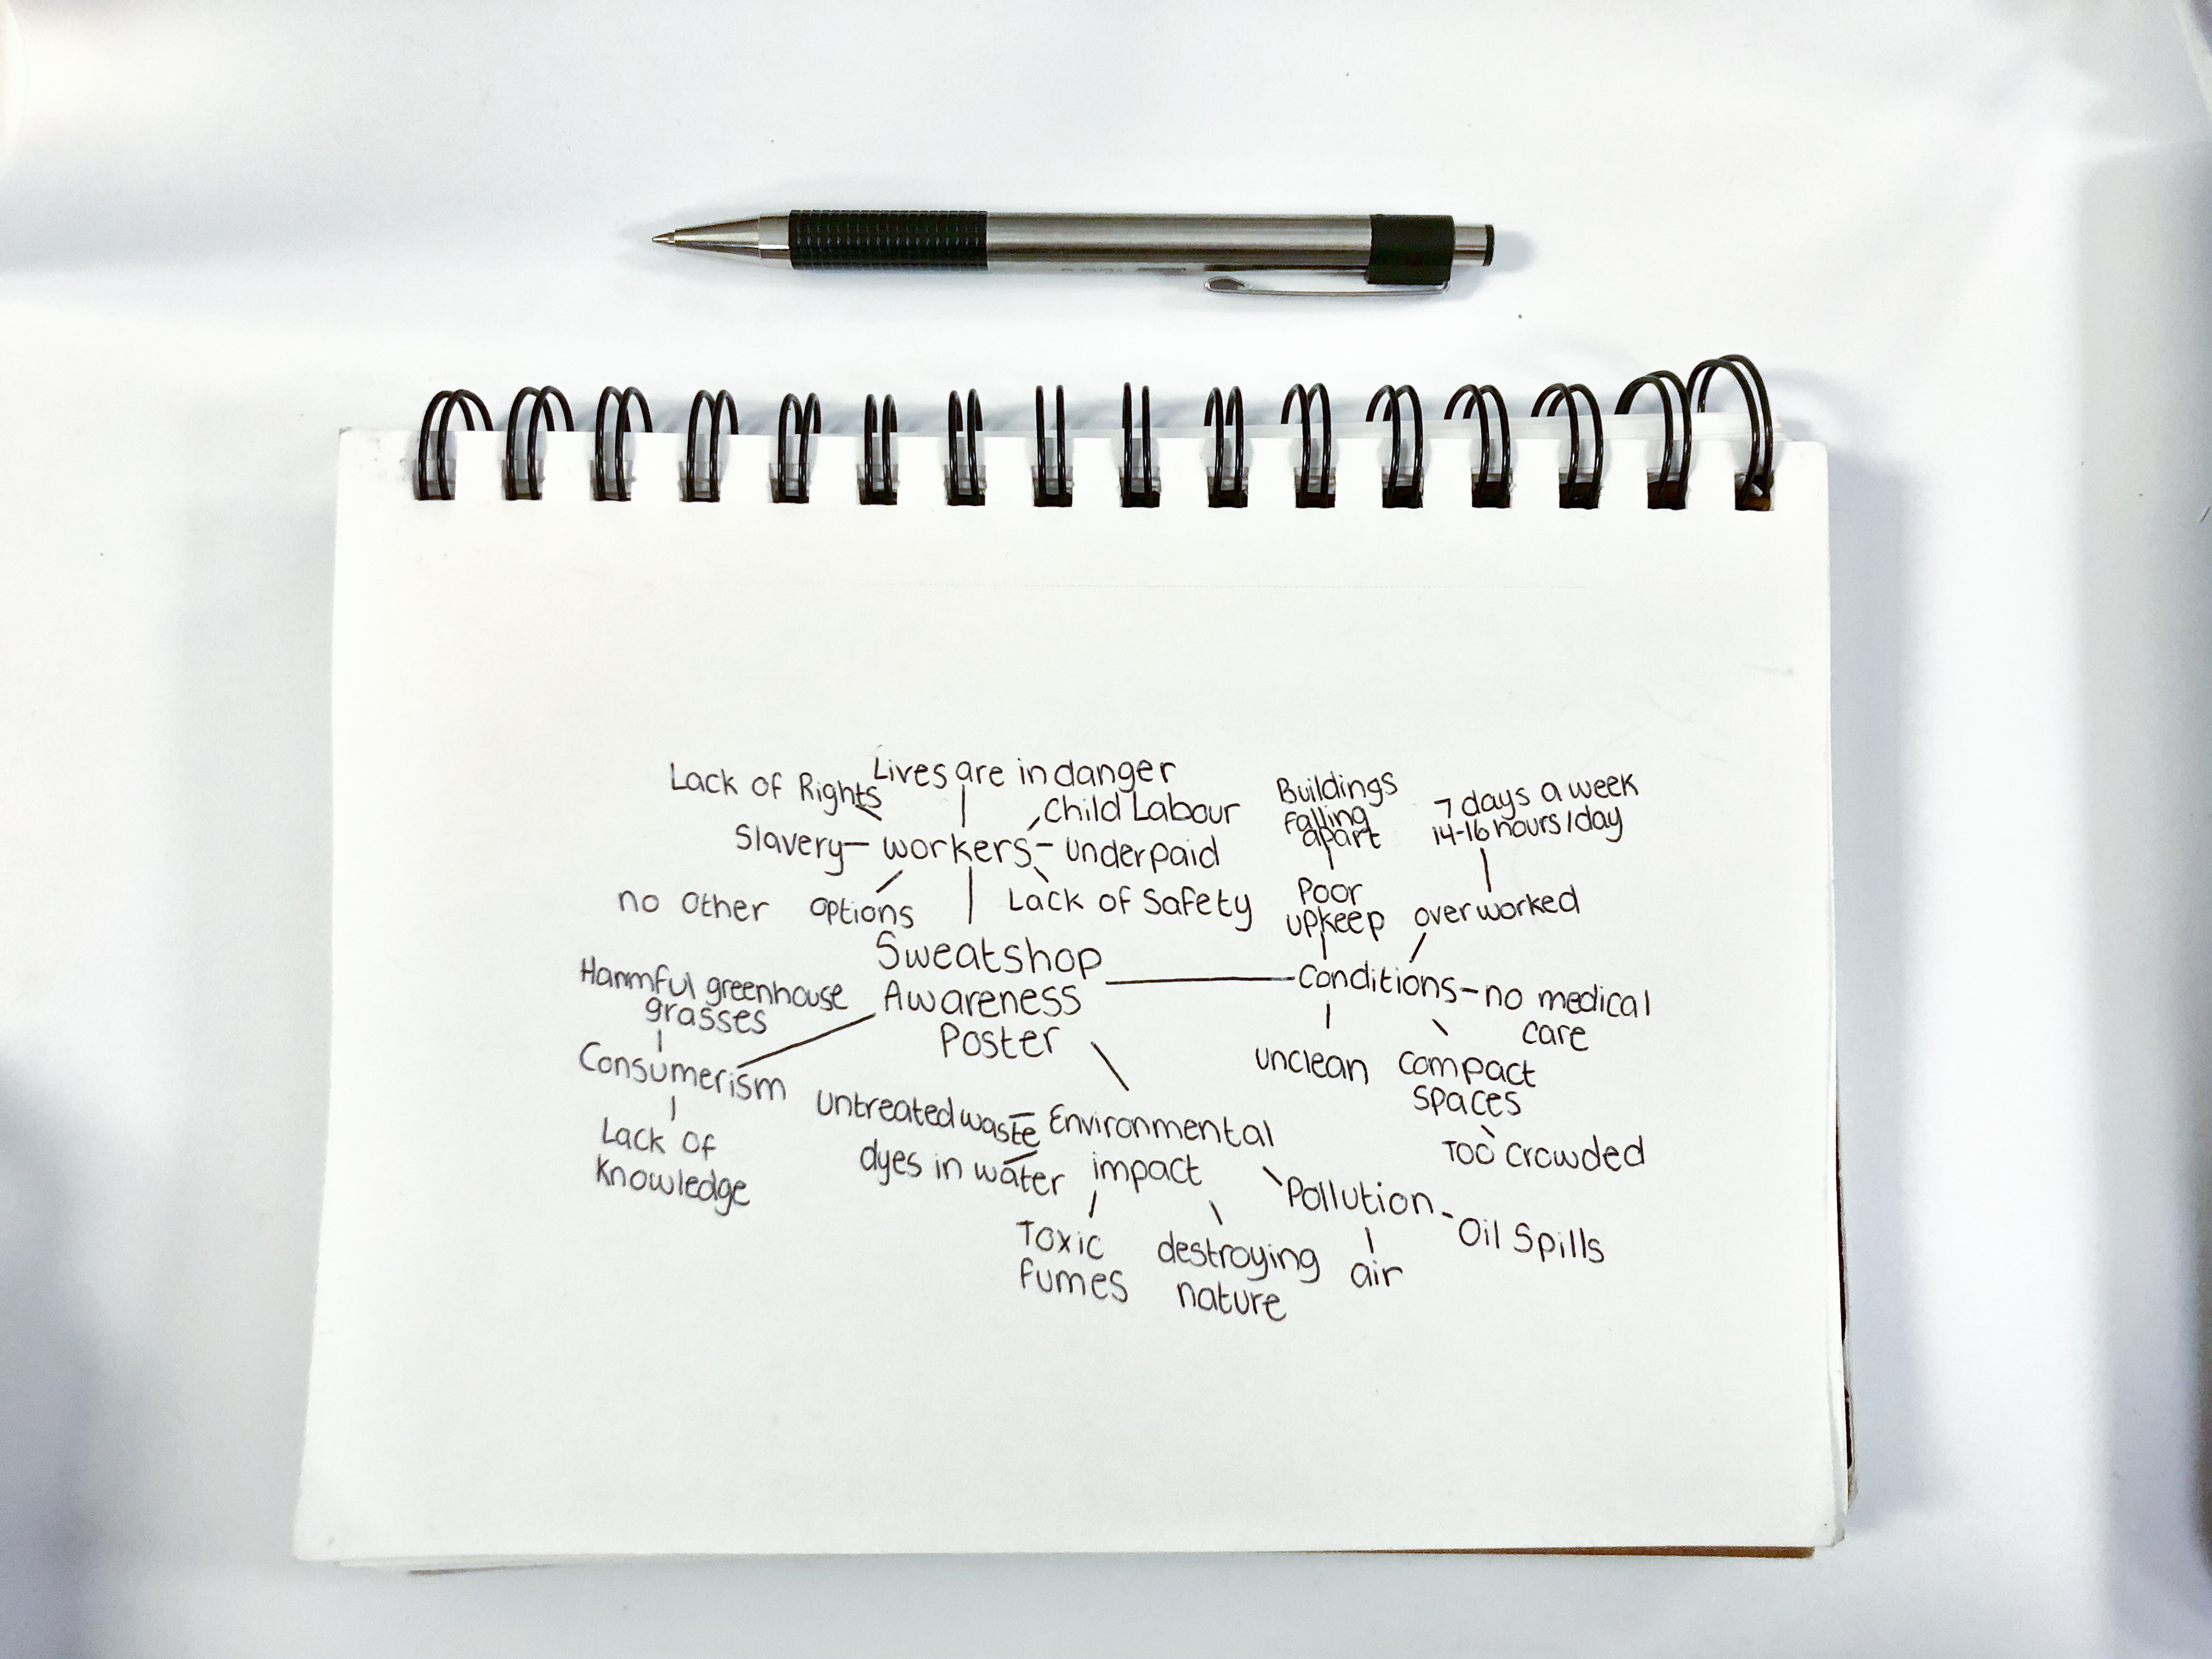 Lack of Rights
Lives are in danger
Child Labour
Slavery - workers - underpaid
no other options
Lack of Safety
Buildings
falling
apart
7 days a week
14-16 hours/day
Poor
upkeep
overworked
Sweatshop
Awareness
Poster
Conditions - no medical
care
unclean
compact
spaces
Too crowded
Harmful greenhouse
grasses
Consumerism
Lack of
Knowledge
untreated waste - Environmental
impact
dyes in water
Toxic
fumes
destroying
nature
Pollution - Oil Spills
air